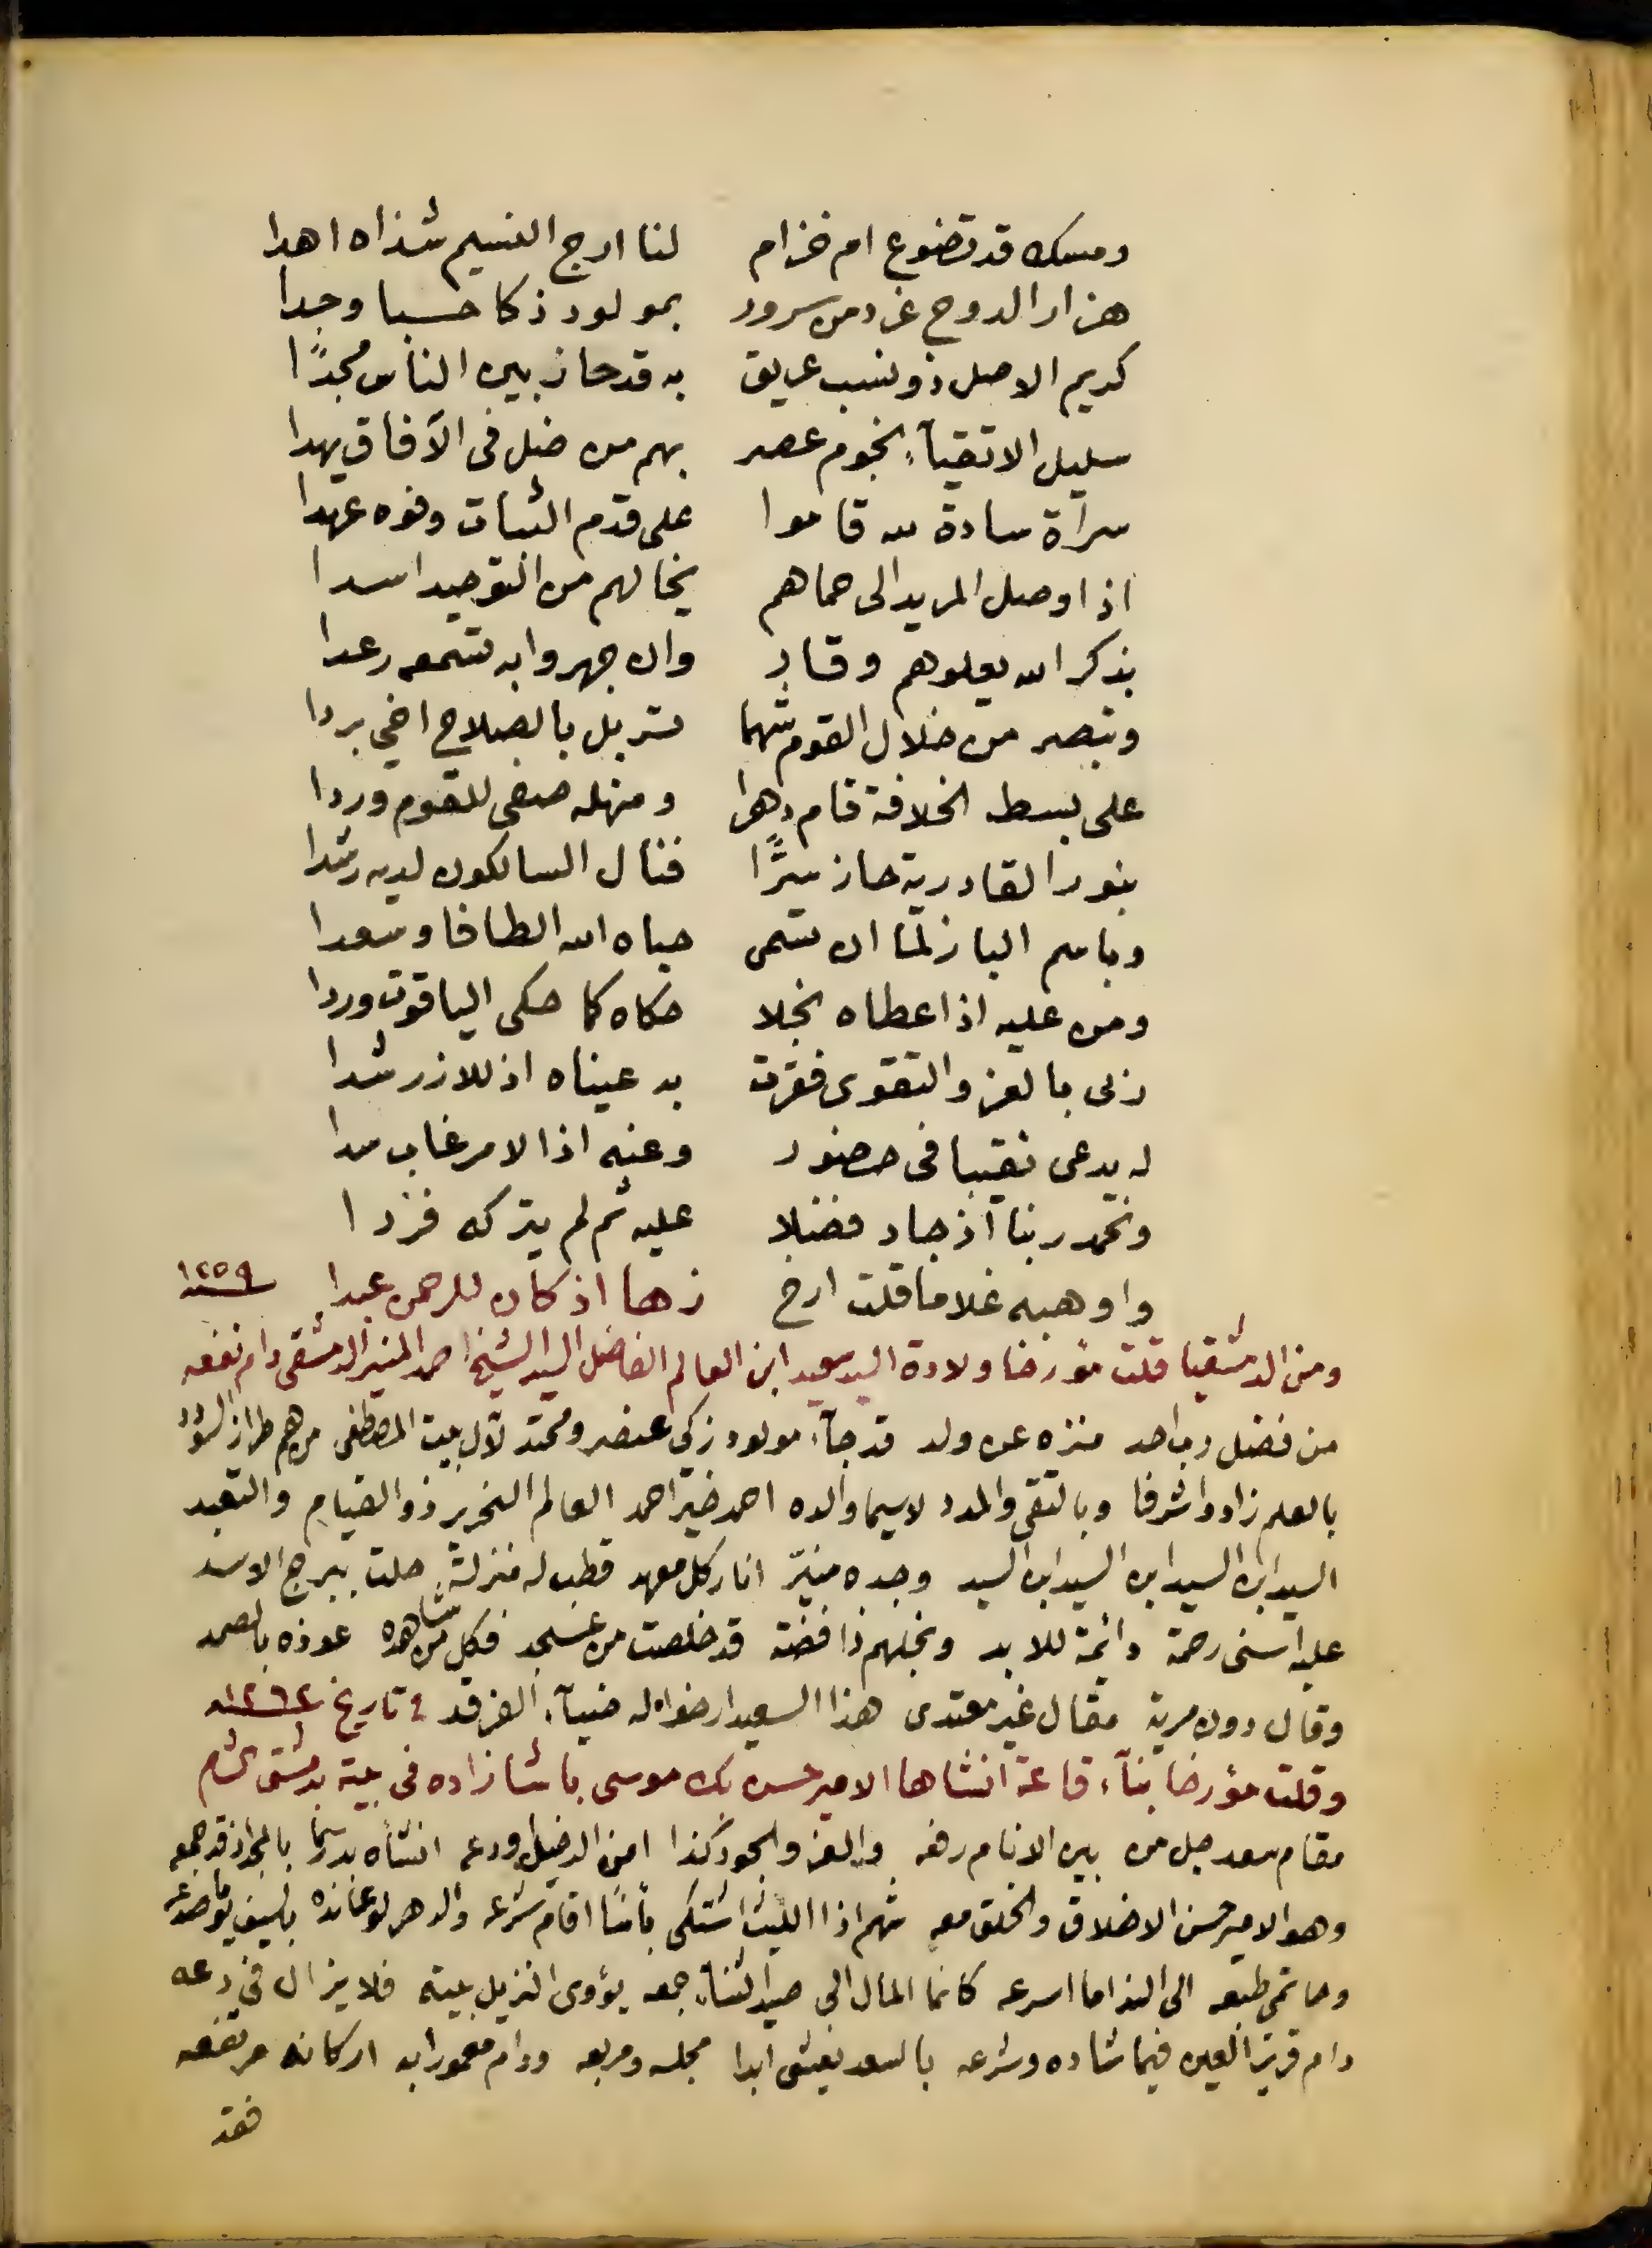 ومسك قد تضوع ام خزام لنا ارج النسيم شذاه اهدا
هزار الدوح غرد من سرور بمولود ذكا حسبا وجدا
كريم الاصل ذو نسب عريق به قد حاز بين الناس مجدًا
سليل الاتقيآء نجوم عصر بهم من ضل فى الآفاق يهدا
سراة سادة لله قاموا على قدم الثبات وفوه عهدا
اذا وصل المريد الى حماهم يخالهم من التوحيد اسدا
بذكر الله يعلوهم وقار وان جهروا به تسمعه رعدا
وتبصر من خلال القوم شهما تسربل بالصلاح اخي بردا
على بسط الخلافة قام دهرا ومنهله صفى للقوم وردا
بنور القادرية حاز سرًّا فنال السالكون لديه رشدا
وباسم الباز لمّا ان تسمى حباه الله الطافا وسعدا
ومن عليه اذ اعطاه نجلا حكاه كما حكى الياقوت وردا
زهى بالعز والتقوى فقرت به عيناه اذ للازر شدا
له يدعى نقيبا فى حضور وعنه اذا الامر غاب سدا
ونحمد ربنا اذ جاد فضلا عليه ثم لم يتركه فردا
واوهبه غلاما قلت ارخ زها اذ كان للرحمن عبدا ١٢٥٩
ومن الدمشقيا قلت مؤرخا ولادة السيد سعيد ابن العالم الفاضل السيد الشيخ احمد المنير الدمشقى دام نفعه
من فضل رب احد منزه عن ولد قد جآء مولود زكي عنصر ومحتد لآل بيت المصطفى من هم طراز السؤدد
بالعلم زادوا شرفا وبالتقى والمدد لاسيما والده احمد خير احمد العالم النحرير ذو القيام والتعبد
السيد ابن السيد ابن السيد ابن السيد وجده منيّر انار كل معهد قطب له منزلة حلت ببرج الاسد
عليه اسنى رحمة دائمة للابد ونجلهم ذا فضة قد خلصت من عسجد فكل من شاهده عوذه بالصمد
وقال دون مرية مقال غير معتدى هذا السعيد ارخوا له ضيآء الفرقد فى تاريخ ١٢٦٢
وقلت مؤرخا بنآء قاعة انشاها الامير حسن بك موسى باشا زاده فى بيته بدمشق الشام
مقام سعد جل من بين الانام رفعه والعز والجود كذا امن الدخيل اودعه انشاه بدر سما بالمجد اذ قد جمعه
وهو الامير حسن الاخلاق والخلق معه شهم اذا الليث اشتكى بأسًا اقام شرعه والدهر لو عانده بالسيف يوما صدعه
وحاتمي طبعه الى الندا ما اسرعه كانما المال الى صيد الثنآء جمعه يؤوى النزيل بيته فلا يزال في دعه
دام قرير العين فيما شاده وشرعه بالسعد يغشى ابدا مجلسه ومربعه ودام معمورا به اركانه مرتفعه
فقد